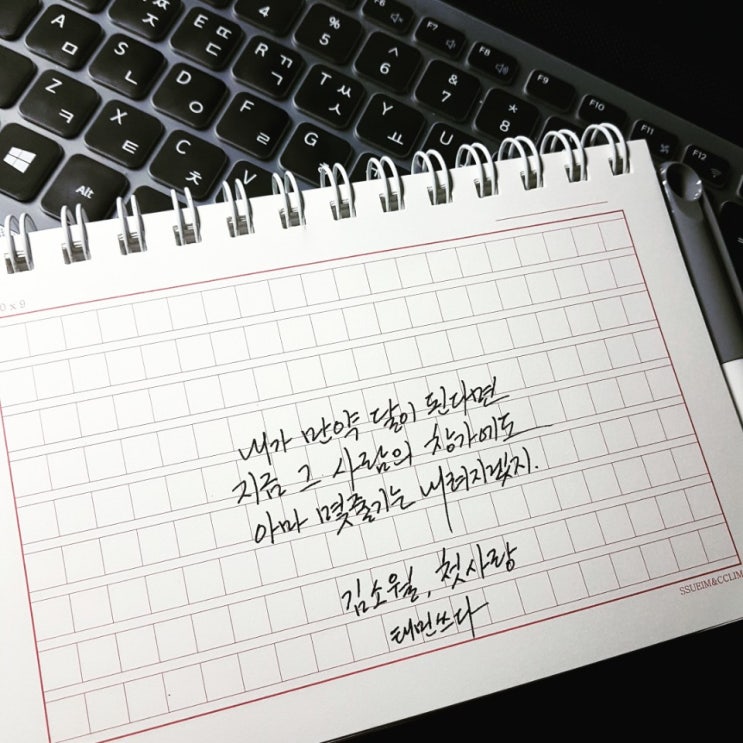 A ㅁ
S ㄴ
D ㅇ
F ㄹ
G
E ㄸ ㄷ
R ㄲ ㄱ
T ㅆ ㅅ
Y ㅛ
U
Z ㅋ
X ㅌ
C ㅊ
V
Alt
4
% 5
^ 6
& 7
* 8
F6
F7
F8
F9
F10
F11
F12
내가 만약 달이 된다면
지금 그 사람의 창가에도
아마 몇줄기는 내려지겠지.
김소월, 첫사랑
태민쓰다
SSUEIM&CCLIM